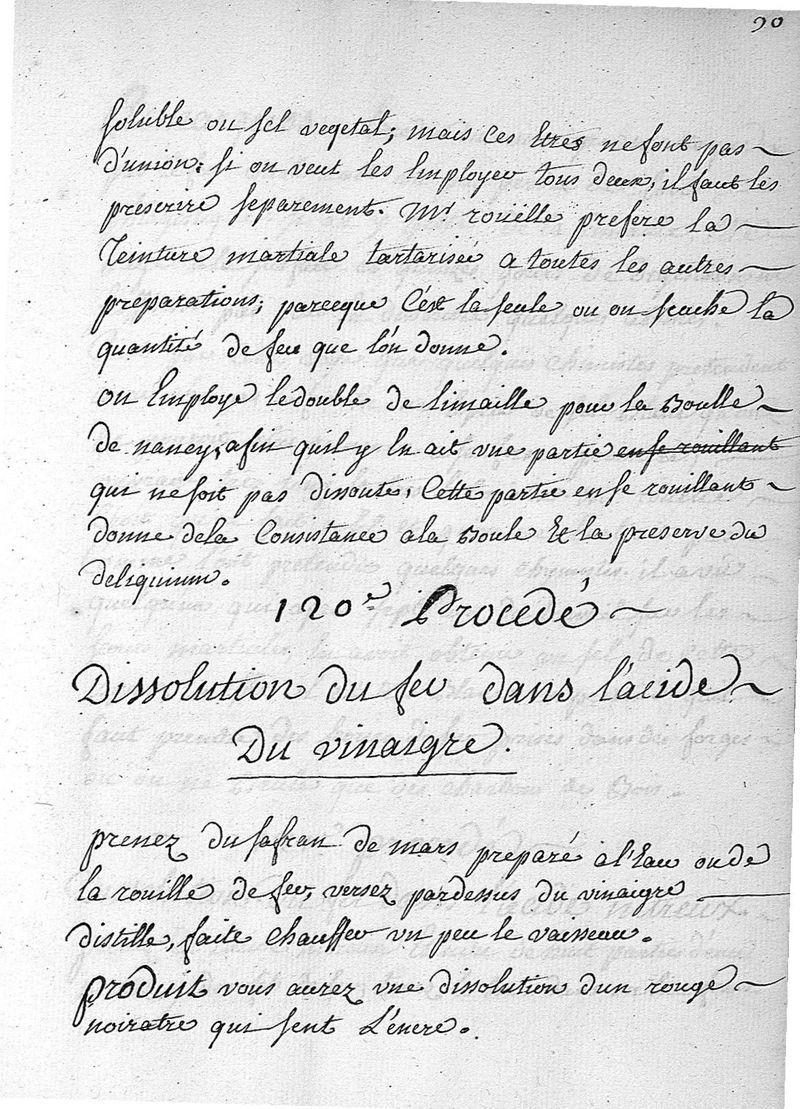 90
soluble ou sel vegetal; mais ces Etres ne font pas
d'union; si on veut les Employer tous deux, il faut les
prescrire separement. Mr rouëlle prefere la
Teinture martiale tartarisée a toutes les autres
préparations; parceque C'est la seule ou on scache la
quantité de fer que l'on donne.
on Employe le double de limaille pour la Boulle
de nancy, afin quil y En ait une partie en se rouillant
qui ne soit pas dissoute, Cette partie en se rouillant
donne de la Consistance a la Boule Et la preserve du
deliquium.
120e Procedé
Dissolution du fer dans l'acide
Du vinaigre.
prenez du safran de mars preparé a l'Eau ou de
la rouille de fer, versez pardessus du vinaigre
distille, faite chauffer un peu le vaisseau.
produit vous aurez une dissolution dun rouge
noiratre qui sent L'encre.